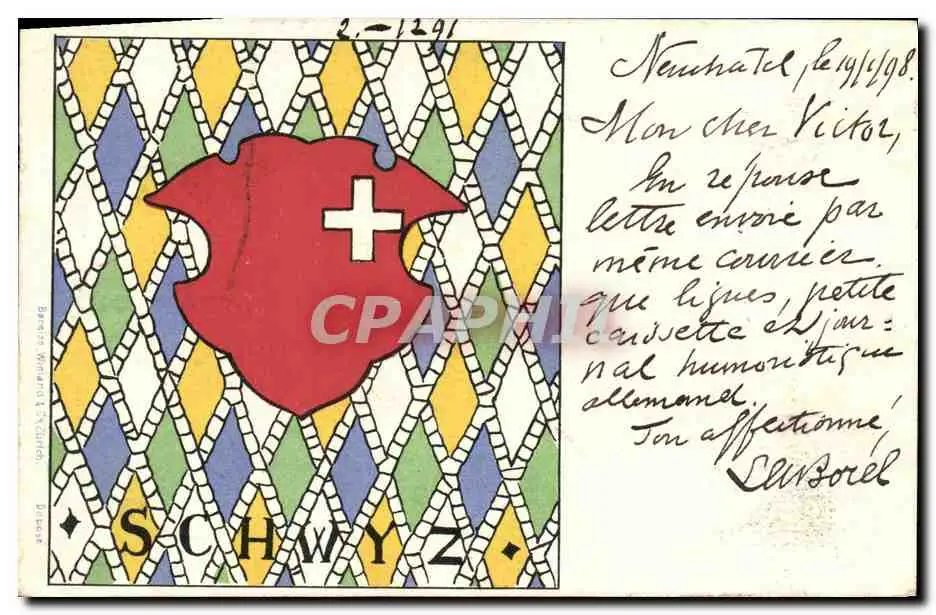 2.-1291
Neuchâtel, le 19/1/98.
Mon cher Victor,
En réponse
lettre envoié par
même courrier
que lignes, petite
caissette et jour=
nal humoristique
allemand.
Ton affectionné,
Borel
CPAPHIL
Zürich.
Déposé
SCHWYZ